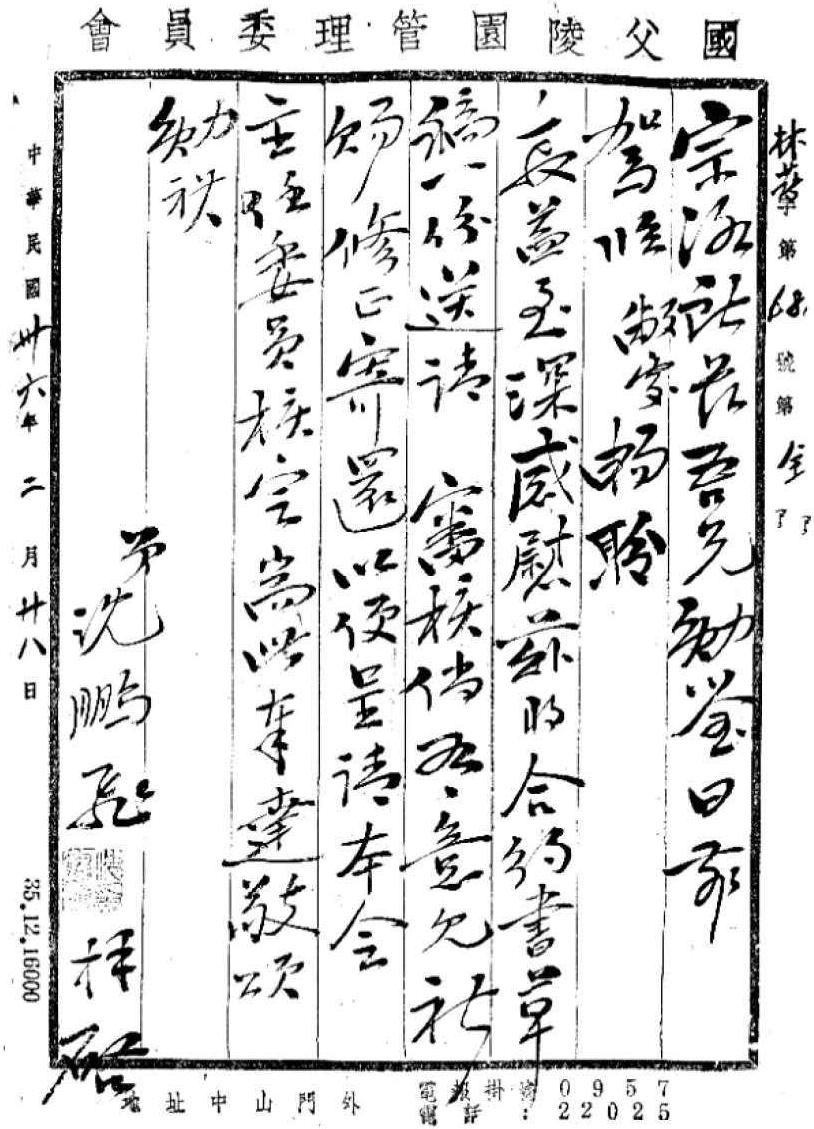 國父陵園管理委員會
林墾第68號第全頁
宗海社長吾兄勛鑒日前
駕臨敝處暢聆
長益至深感慰茲將合約書草
稿一份送請 審核倘有意見祈
賜修正寄還以便呈請本會
主任委員核定尚此奉達敬頌
勛祺
弟沈鵬飛
拜啓
中華民國卅六年二月廿八日
35.12.16000
電報掛號0957
電話:22025
地址中山門外